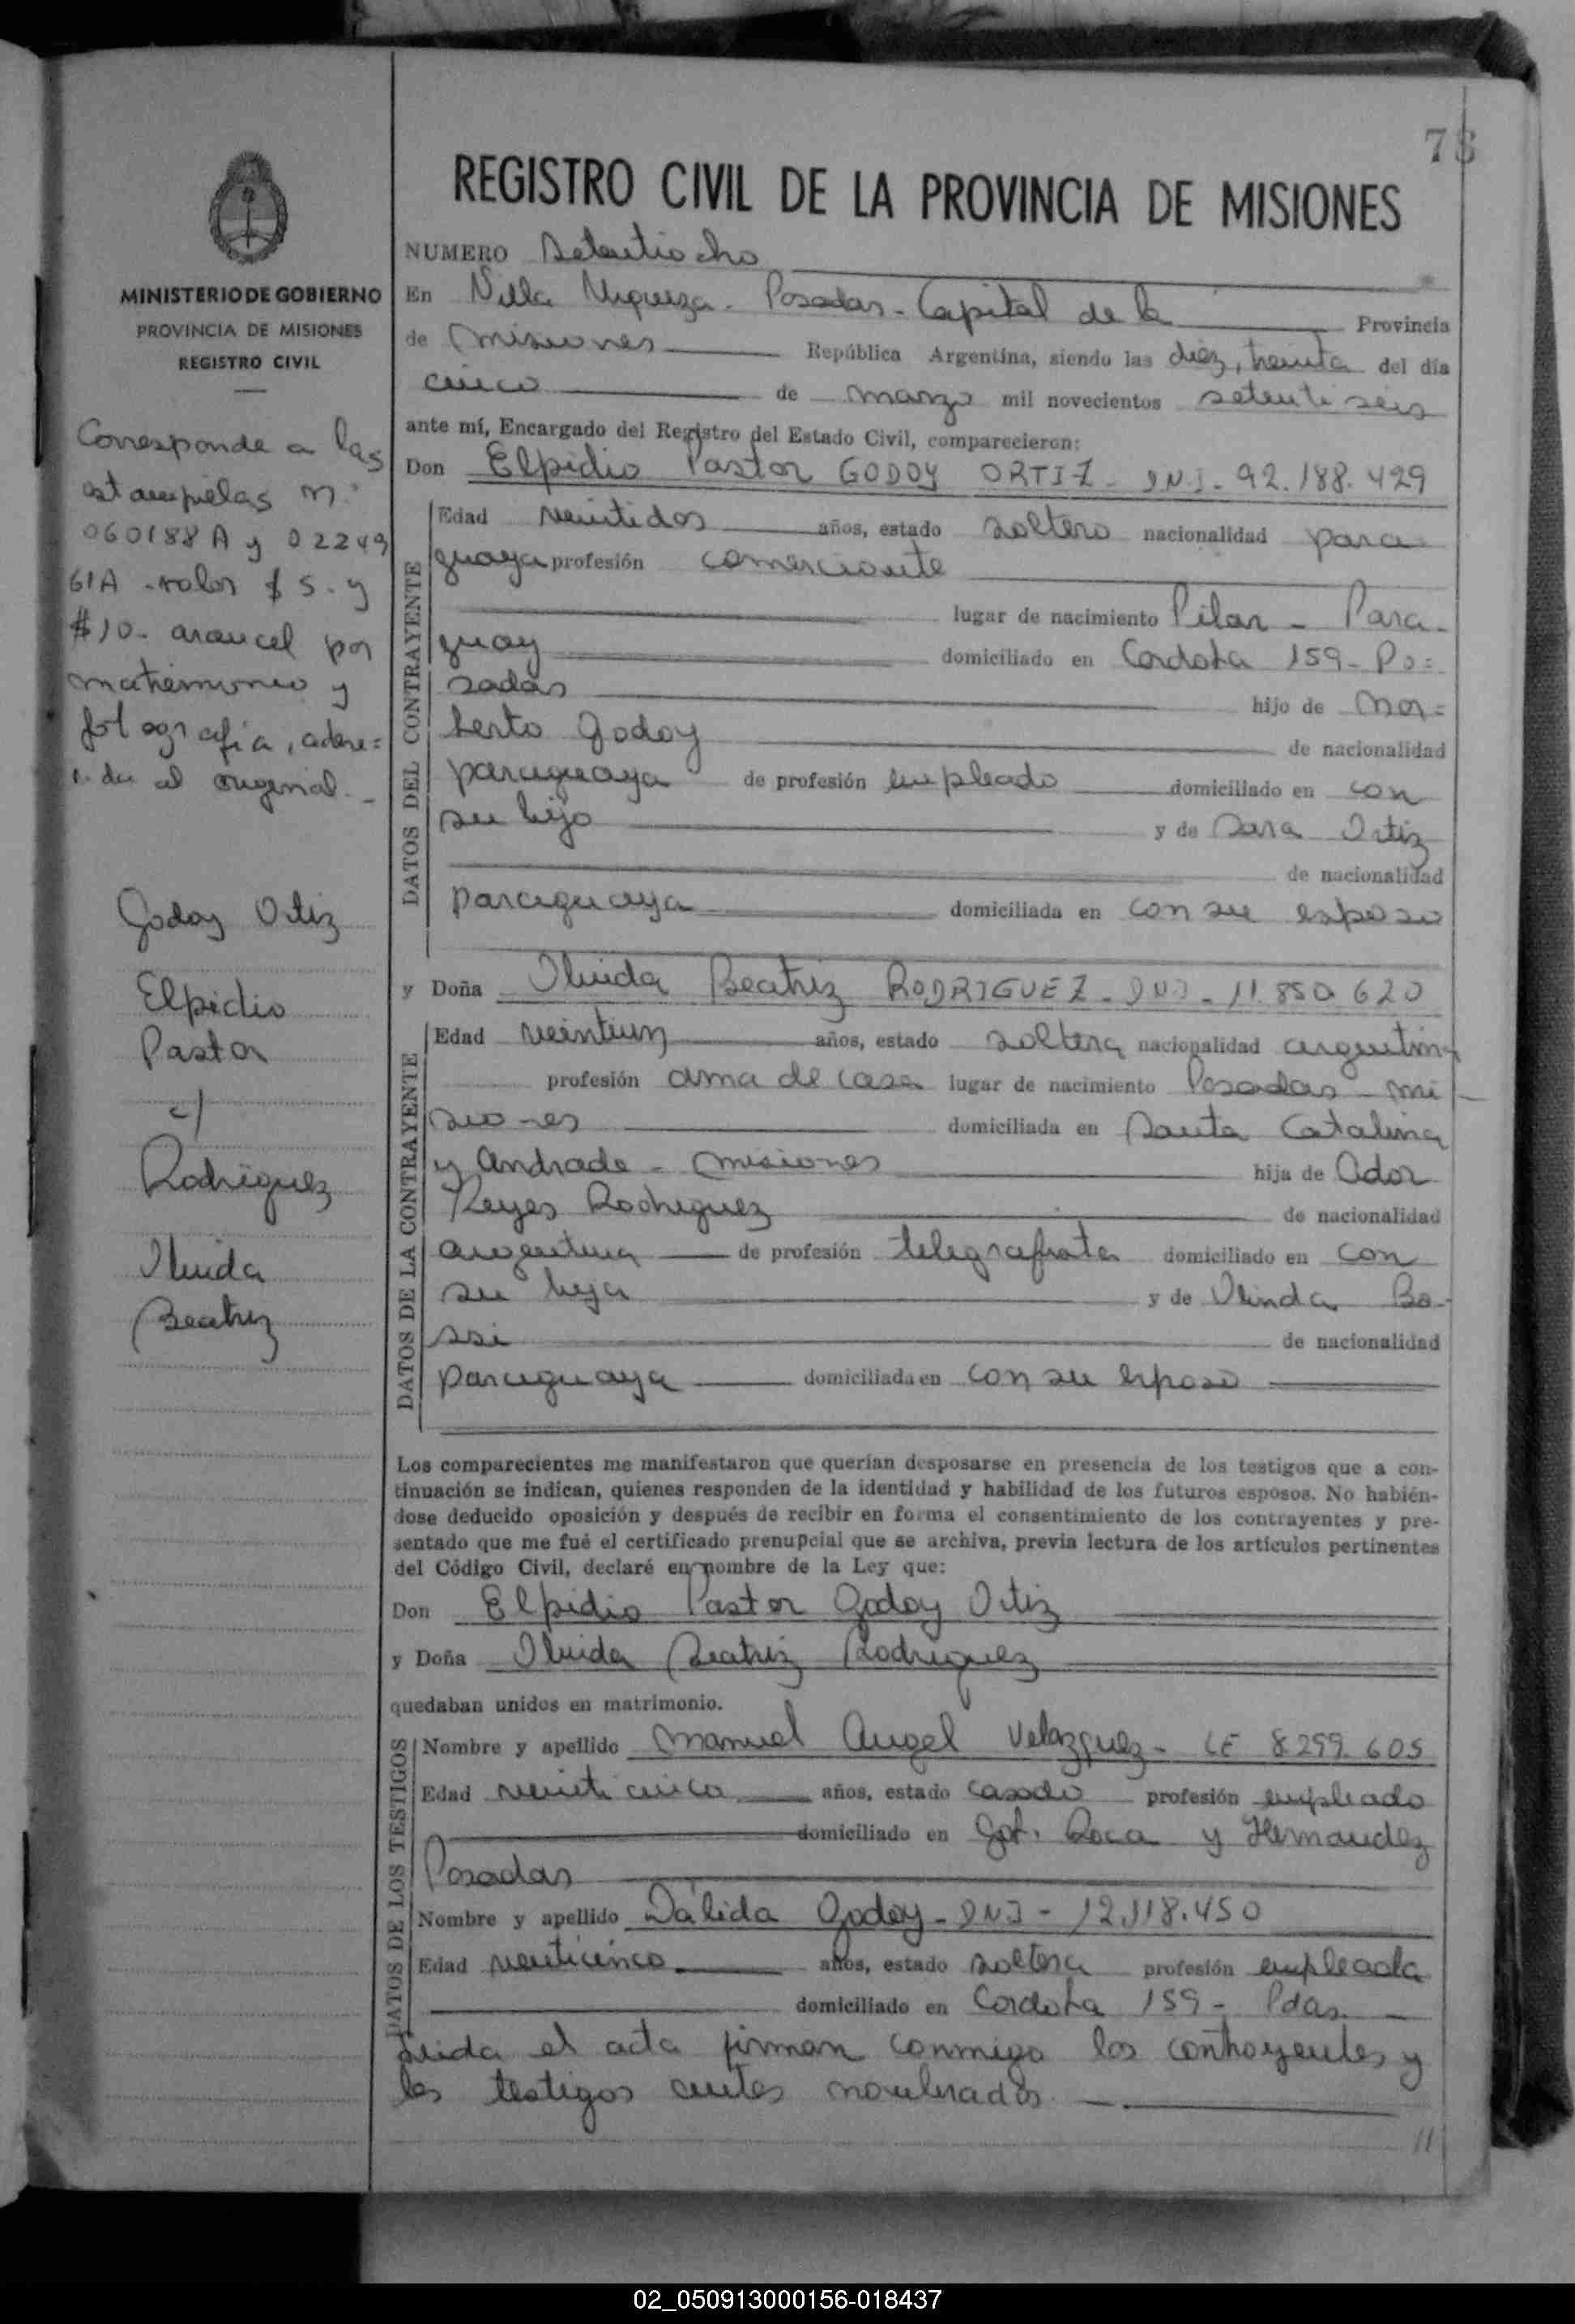 78
REGISTRO CIVIL DE LA PROVINCIA DE MISIONES
NUMERO Setentiocho
En Villa Urquiza - Posadas - Capital de la Provincia
de Misiones República Argentina, siendo las diez, treinta del día
cinco de marzo mil novecientos setentiseis
ante mí, Encargado del Registro del Estado Civil, comparecieron:
Don Elpidio Pastor GODOY ORTIZ - DNI - 92.188.429
DATOS DEL CONTRAYENTE
Edad veintidos años, estado soltero nacionalidad para-
guaya profesión comerciante
lugar de nacimiento Pilar - Para-
guay domiciliado en Cordoba 159 - Po=
sadas hijo de Nor=
berto Godoy de nacionalidad
paraguaya de profesión empleado domiciliado en con
su hijo y de Sara Ortiz
de nacionalidad
paraguaya domiciliada en con su esposo
y Doña Olinda Beatriz RODRIGUEZ - DNI - 11.850.620
DATOS DE LA CONTRAYENTE
Edad veintiun años, estado soltera nacionalidad argentina
profesión ama de casa lugar de nacimiento Posadas - Mi
siones domiciliada en Santa Catalina
y Andrade - Misiones hija de Ador
Reyes Rodriguez de nacionalidad
argentina de profesión telegrafista domiciliado en con
su hija y de Olinda Bo-
ssi de nacionalidad
paraguaya domiciliada en con su esposo
Los comparecientes me manifestaron que querían desposarse en presencia de los testigos que a con-
tinuación se indican, quienes responden de la identidad y habilidad de los futuros esposos. No habién-
dose deducido oposición y después de recibir en forma el consentimiento de los contrayentes y pre-
sentado que me fué el certificado prenupcial que se archiva, previa lectura de los artículos pertinentes
del Código Civil, declaré en nombre de la Ley que:
Don Elpidio Pastor Godoy Ortiz
y Doña Olinda Beatriz Rodriguez
quedaban unidos en matrimonio.
DATOS DE LOS TESTIGOS
Nombre y apellido Manuel Angel Velazquez - LE 8299.605
Edad veinticinco años, estado casado profesión empleado
domiciliado en Gpt. Roca y Hernandez
Posadas
Nombre y apellido Dálida Godoy - DNI - 12.118.450
Edad veinticinco años, estado soltera profesión empleada
domiciliado en Cordoba 159 - Pdas.
Leida el acta firman conmigo los contrayentes y
los testigos antes nombrados.
MINISTERIO DE GOBIERNO
PROVINCIA DE MISIONES
REGISTRO CIVIL
Corresponde a las
estampillas n°
060188 A y 02249
61A - valor $ 5.- y
$10.- arancel por
matrimonio y
fotografia, adhe=
rida al original.-
Godoy Ortiz
Elpidio
Pastor
c/
Rodriguez
Olinda
Beatriz
02_050913000156-018437